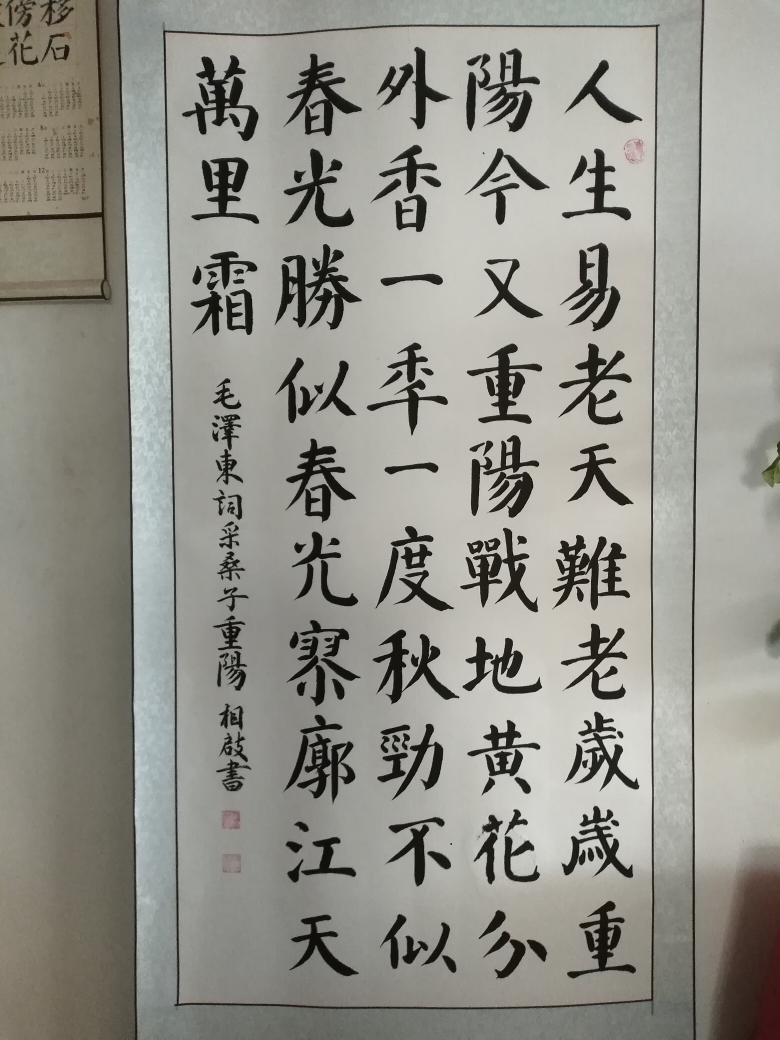 人生易老天難老歲歲重
陽今又重陽戰地黄花分
外香一季一度秋勁不似
春光勝似春光寥廓江天
萬里霜
毛澤東詞采桑子重陽 相啟書
移石
傍花